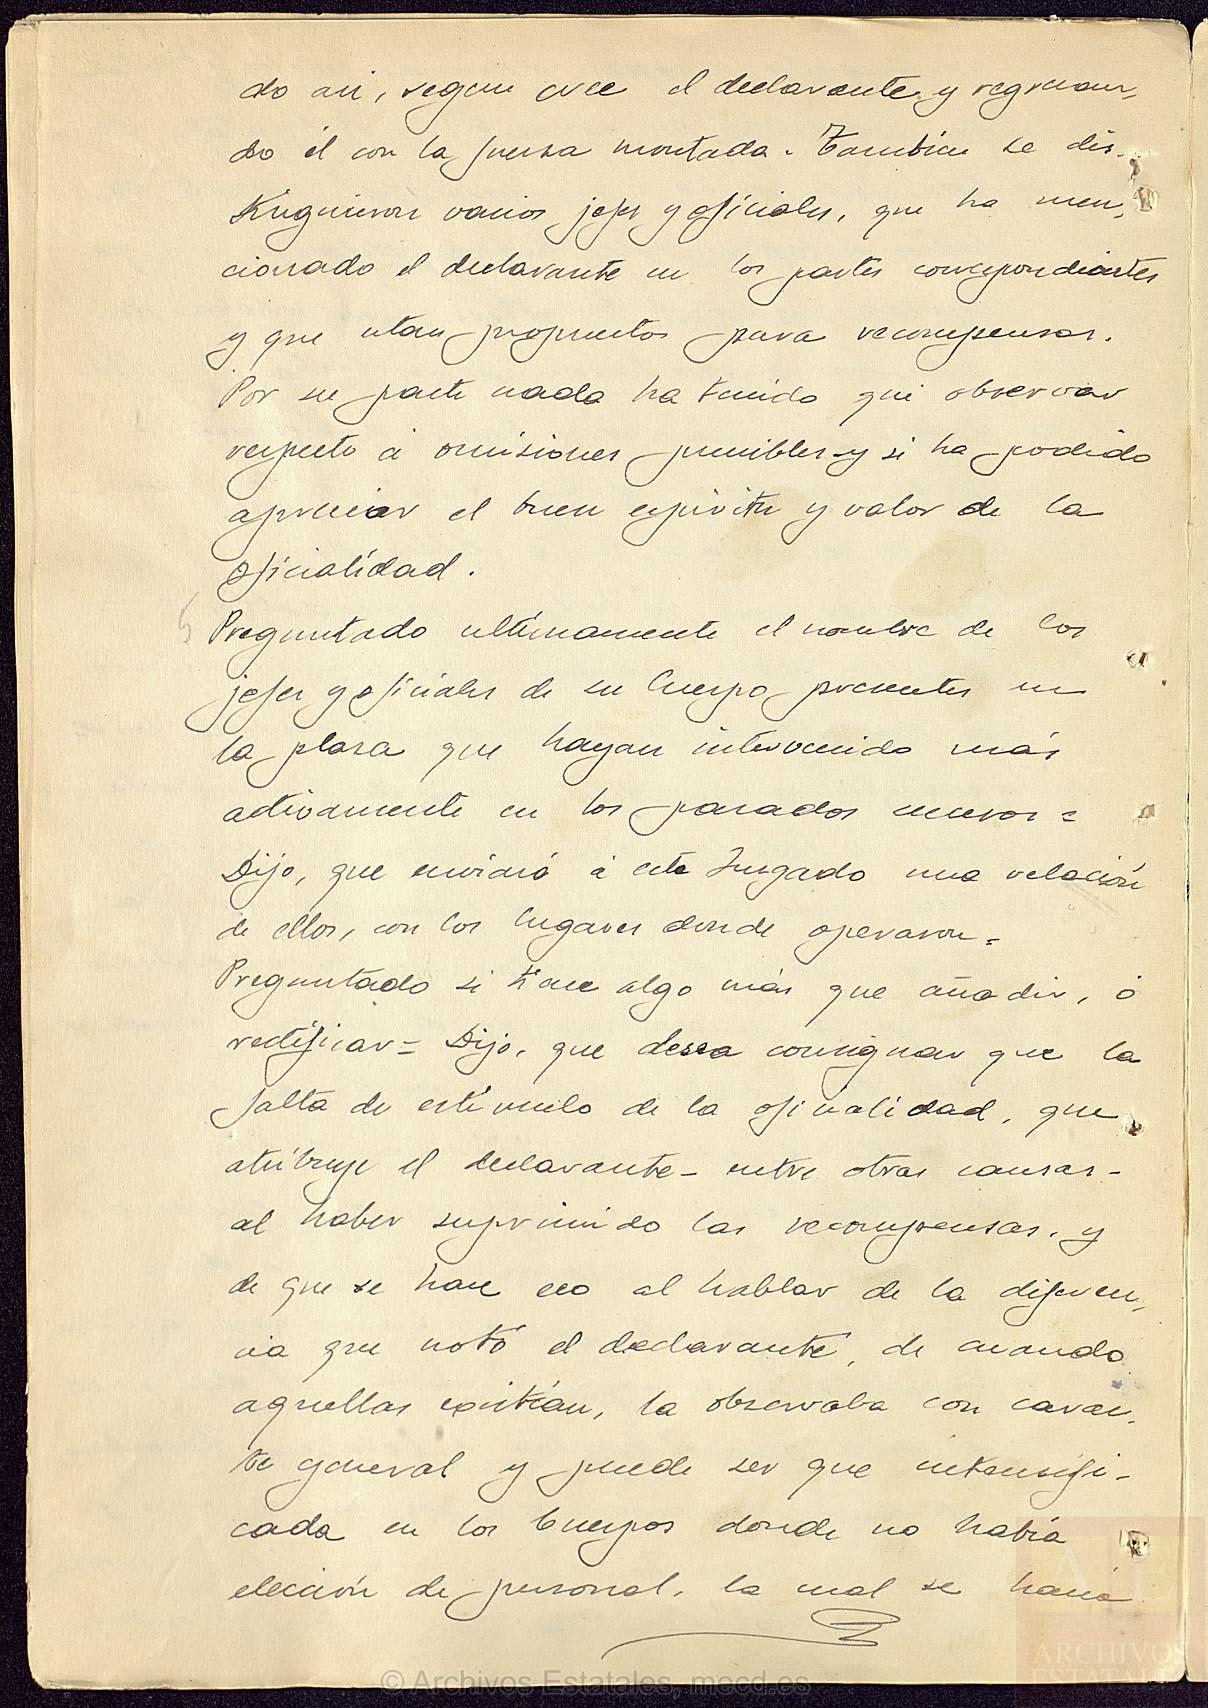 do asi, segun cree el declarante y regresan,
do él con la fuerza montada. También se dis,
tinguieron varios jefes y oficiales, que ha men,
cionado el declarante en los partes correspondientes
y que estan propuestos para recompensas.
Por su parte nada ha tenido que observar
respecto á omisiones punibles y si ha podido
apreciar el buen espiritu y valor de la
oficialidad.
Preguntado ultimamente el nombre de los
jefes y oficiales de su Cuerpo presentes en
la plaza que hayan intervenido más
activamente en los pasados sucesos =
Dijo, que enviará á este Juzgado una relación
de ellos, con los lugares donde operaron =
Preguntado si tiene algo más que añadir, ó
rectificar = Dijo, que desea consignar que la
falta de estímulo de la oficialidad, que
atribuye el declarante - entre otras causas -
al haber suprimido las recompensas, y
de que se hace eco al hablar de la diferen,
cia que notó el declarante, de cuando
aquellas existían, la observaba con carac,
ter general y puede ser que intensifi-
cada en los Cuerpos donde no había
elección de personal, la cual se hacía
© Archivos Estatales, mecd.es
ARCHIVOS
ESTATALES